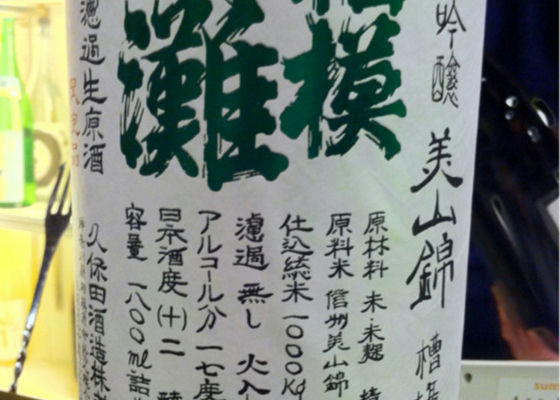 吟醸 美山錦 槽場
相模
灘
原材料 米・米麹
原料米 信州美山錦
仕込総米 一〇〇〇Kg
濾過 無し 火入
アルコール分 一七度
日本酒度 (十)二
容量 一八〇〇ml詰
濾過生原酒
限定品
久保田酒造株